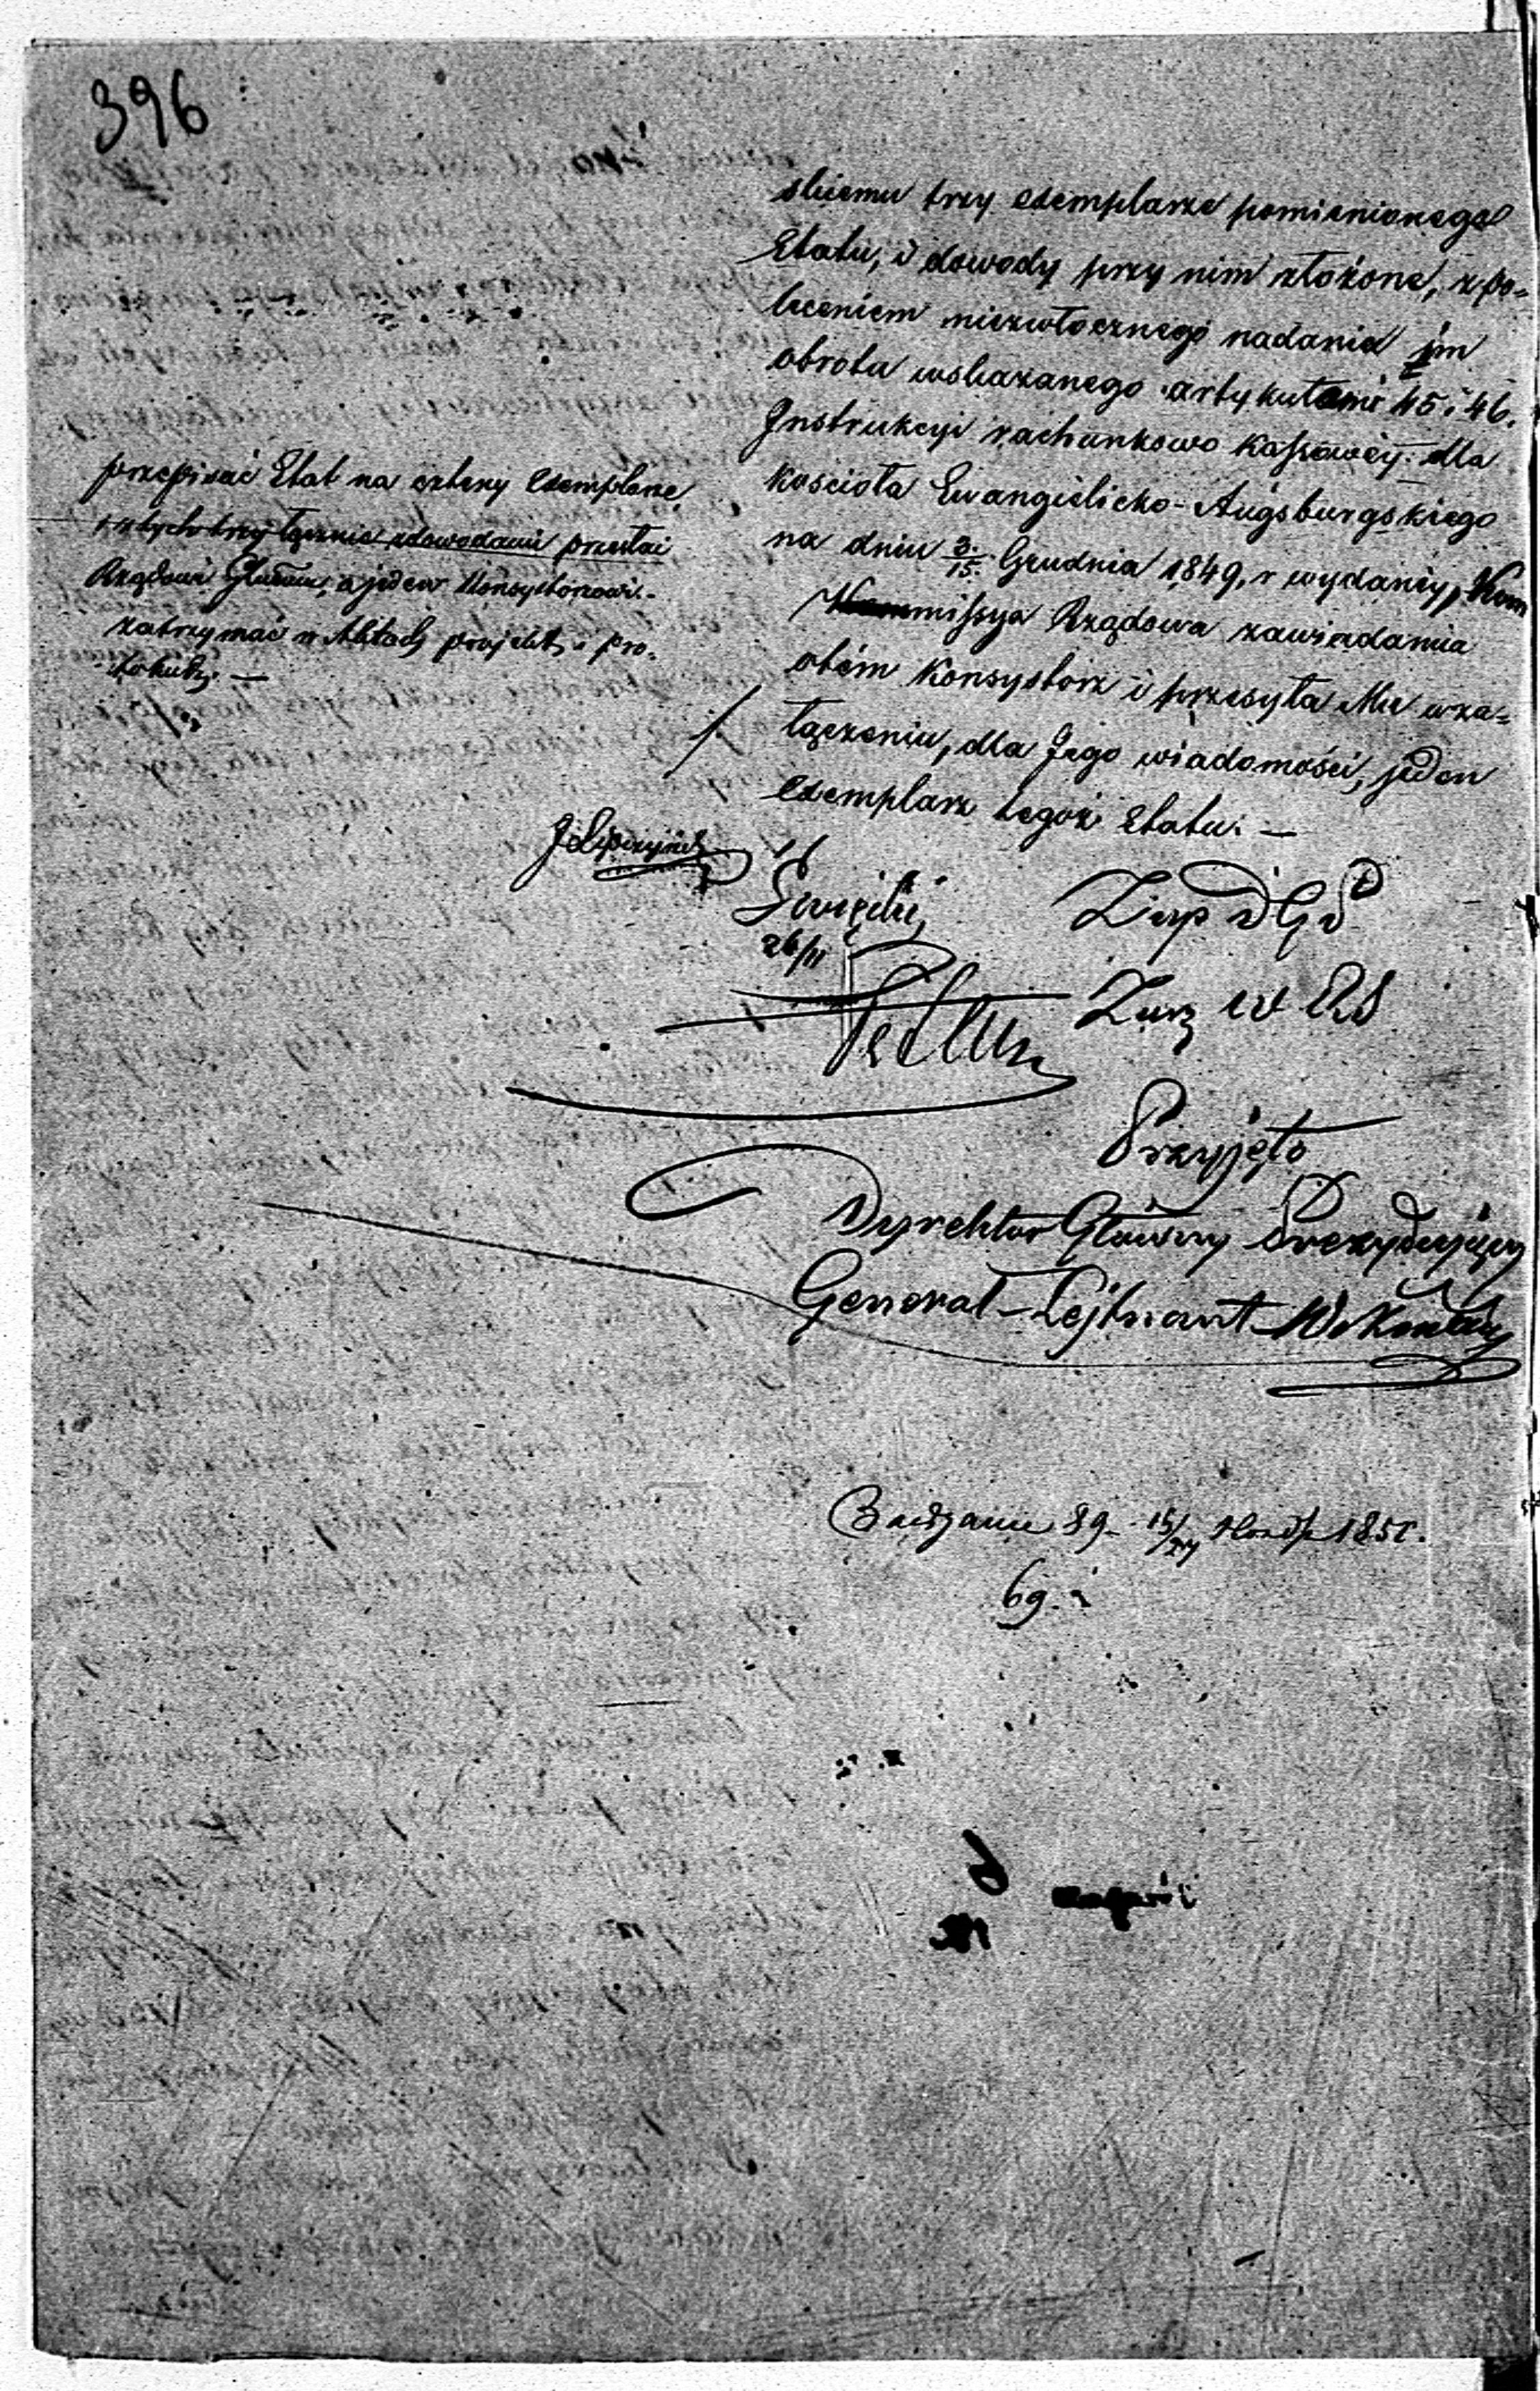 396
skiemu trzy exemplarze pomienionego
Etatu, i dowody przy nim złożone, z po-
leceniem niezwłocznego nadania im
obrotu wskazanego artykułami 45 i 46.
Instrukcyi rachunkowo kassowéy dla
kościoła Ewangielicko-Augsburgskiego
na dniu 3/15 Grudnia 1849, r wydanéy, Kom
missya Rządowa zawiadamia
otém Konsystorz i przesyła Mu wza-
łączeniu, dla Jego wiadomości, jeden
exemplarz tegoż Etatu. —
przepisać Etat na cztery exemplarze,
z tych trzy łącznie z dowodami przesłać
Rządowi Gubern, a jeden Konsystorzowi.
zatrzymać w Aktach projekt, i pro-
tokuł. —
Święcki
26/11
Przyjęto
Dyrektor Główny Prezydujący
Generał-Lejtnant
89 15/27 185
69.